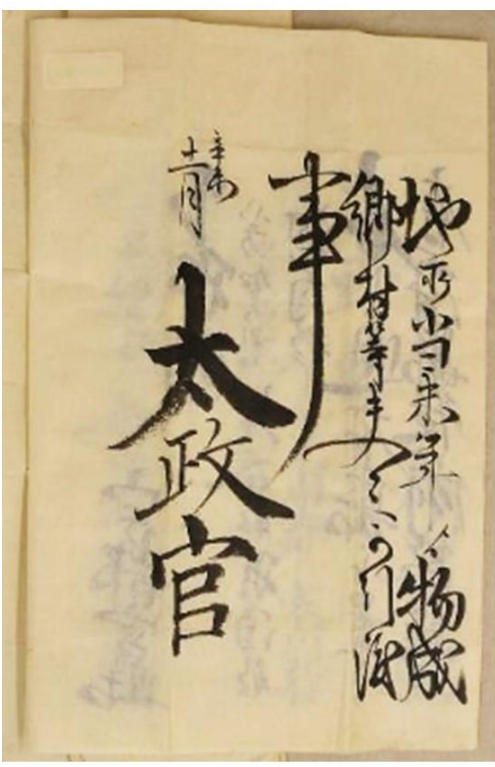 地所当未年ゟ物成
郷村等夫々可引渡
事
辛未
十一月
太政官